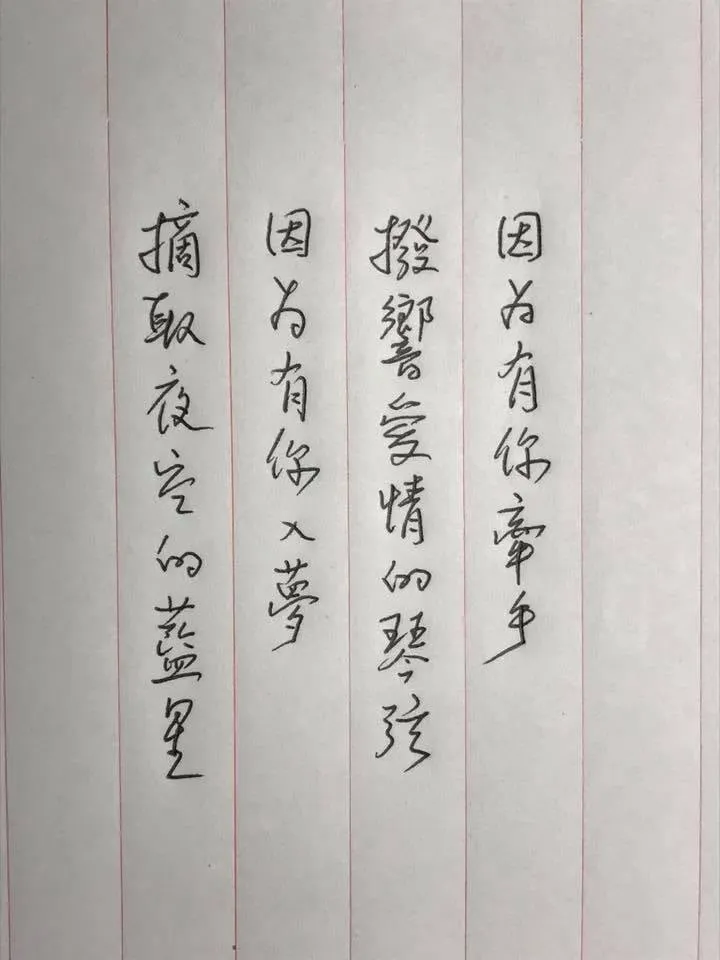 因为有你牽手
撥響愛情的琴弦
因为有你入夢
摘取夜空的藍星